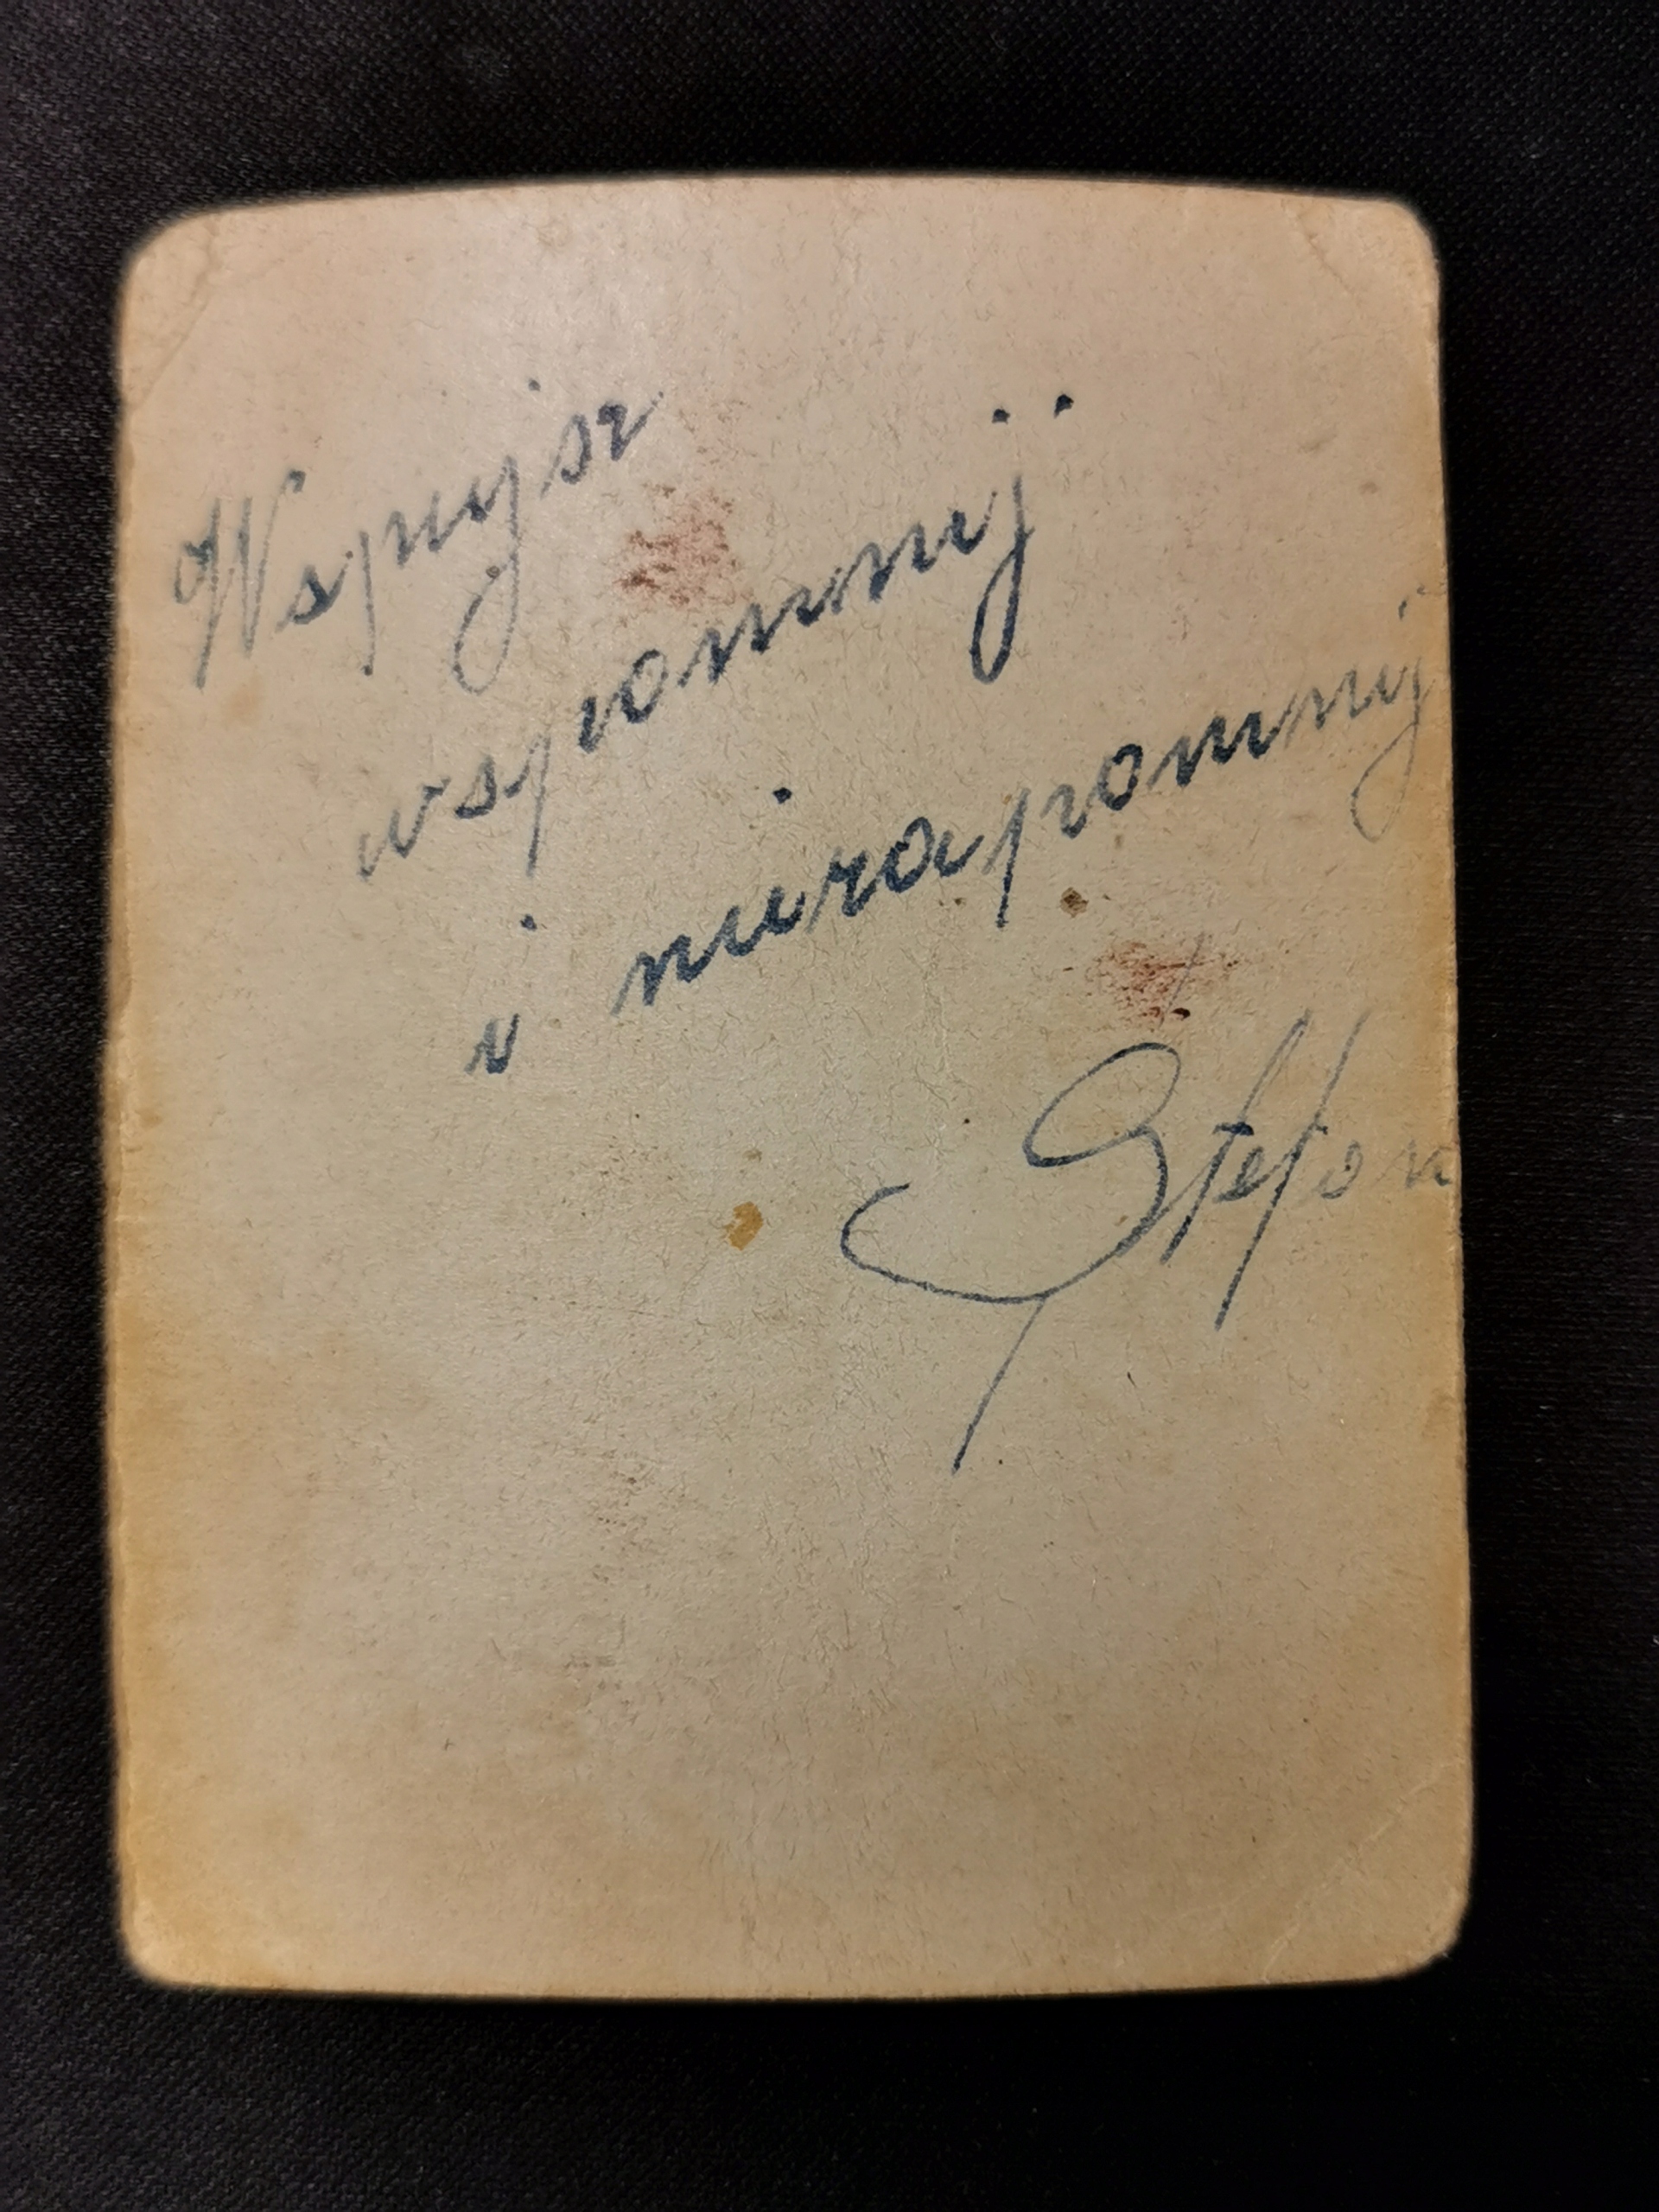 Wspujsz
wspomnij
i niezapomnij
Stefan